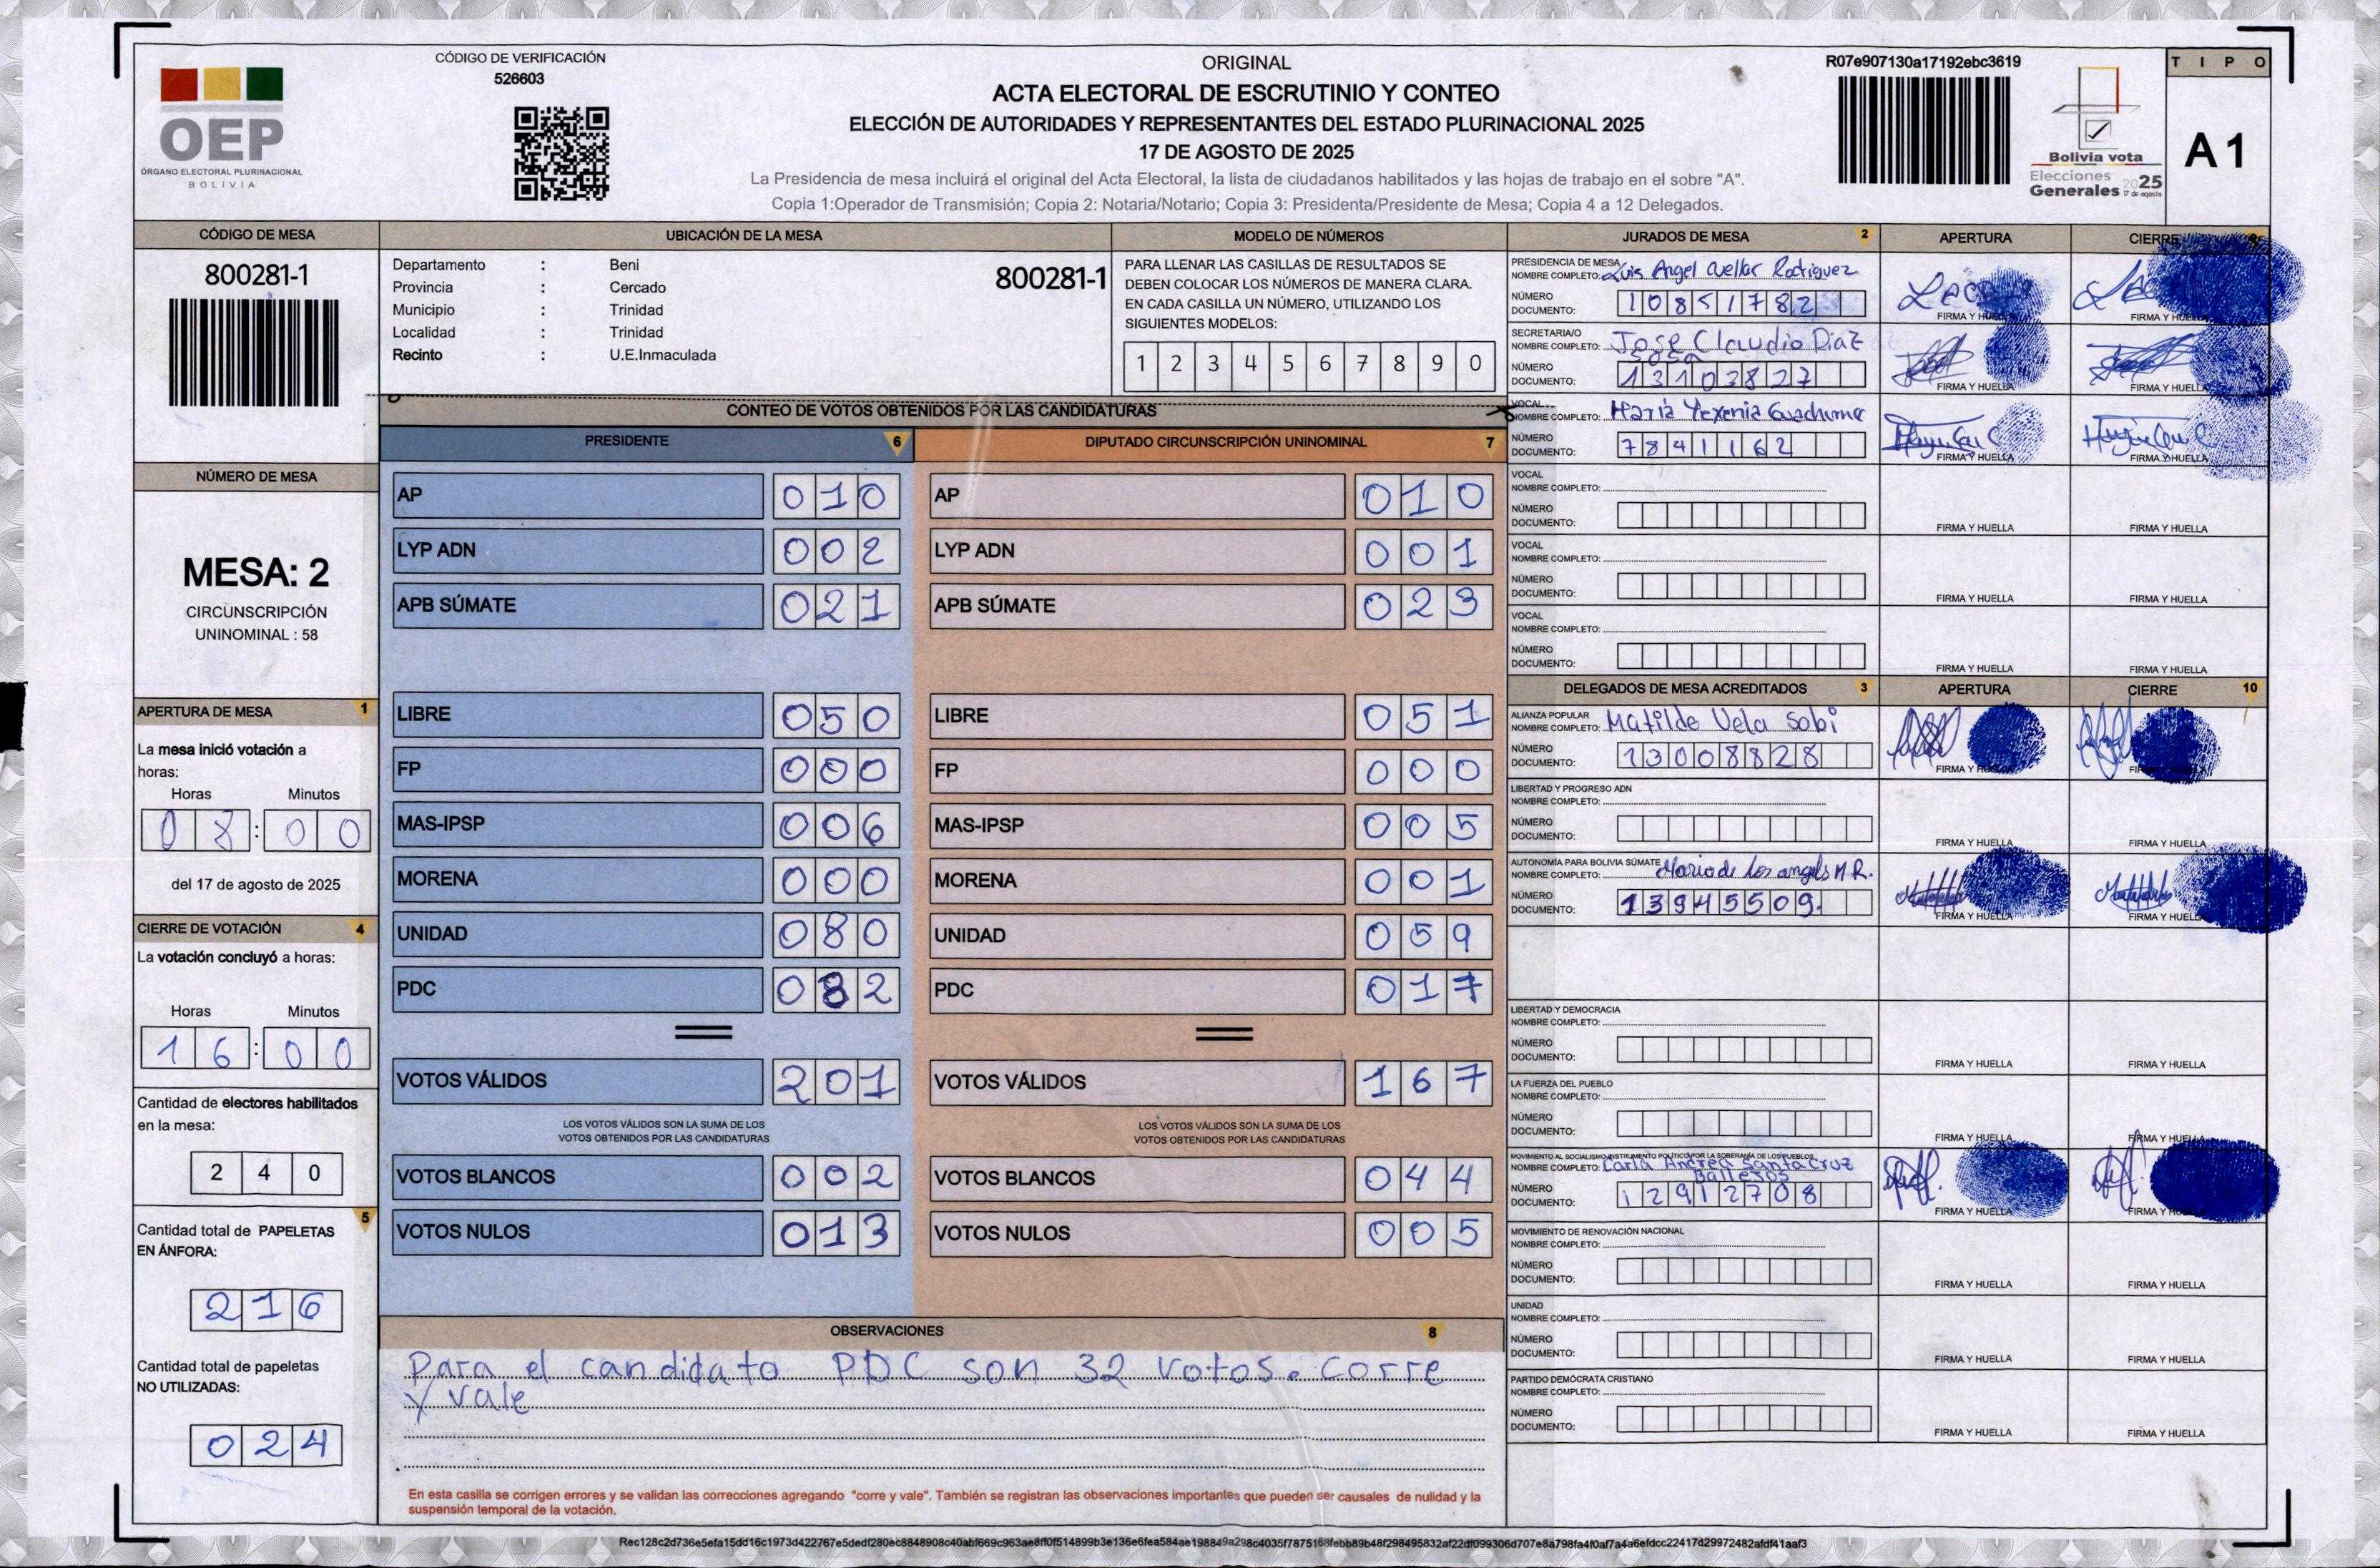 CÓDIGO DE VERIFICACIÓN
526603
OEP
ÓRGANO ELECTORAL PLURINACIONAL
BOLIVIA
ORIGINAL
ACTA ELECTORAL DE ESCRUTINIO Y CONTEO
ELECCIÓN DE AUTORIDADES Y REPRESENTANTES DEL ESTADO PLURINACIONAL 2025
17 DE AGOSTO DE 2025
La Presidencia de mesa incluirá el original del Acta Electoral, la lista de ciudadanos habilitados y las hojas de trabajo en el sobre "A".
Copia 1:Operador de Transmisión; Copia 2: Notaria/Notario; Copia 3: Presidenta/Presidente de Mesa; Copia 4 a 12 Delegados.
R07e907130a17192ebc3619
Bolivia vota
Elecciones
Generales 2025
17 de agosto
TIPO
A 1
CÓDIGO DE MESA
800281-1
UBICACIÓN DE LA MESA
Departamento : Beni
Provincia : Cercado
Municipio : Trinidad
Localidad : Trinidad
Recinto : U.E.Inmaculada
800281-1
MODELO DE NÚMEROS
PARA LLENAR LAS CASILLAS DE RESULTADOS SE
DEBEN COLOCAR LOS NÚMEROS DE MANERA CLARA.
EN CADA CASILLA UN NÚMERO, UTILIZANDO LOS
SIGUIENTES MODELOS:
1 2 3 4 5 6 7 8 9 0
NÚMERO DE MESA
MESA: 2
CIRCUNSCRIPCIÓN
UNINOMINAL : 58
APERTURA DE MESA 1
La mesa inició votación a
horas:
Horas Minutos
08:00
del 17 de agosto de 2025
CIERRE DE VOTACIÓN 4
La votación concluyó a horas:
Horas Minutos
16:00
Cantidad de electores habilitados
en la mesa:
240
5
Cantidad total de PAPELETAS
EN ÁNFORA:
216
Cantidad total de papeletas
NO UTILIZADAS:
024
CONTEO DE VOTOS OBTENIDOS POR LAS CANDIDATURAS
PRESIDENTE 6
AP 010
LYP ADN 002
APB SÚMATE 021
LIBRE 050
FP 000
MAS-IPSP 006
MORENA 000
UNIDAD 080
PDC 082
VOTOS VÁLIDOS 201
LOS VOTOS VÁLIDOS SON LA SUMA DE LOS
VOTOS OBTENIDOS POR LAS CANDIDATURAS
VOTOS BLANCOS 002
VOTOS NULOS 013
DIPUTADO CIRCUNSCRIPCIÓN UNINOMINAL 7
AP 010
LYP ADN 001
APB SÚMATE 023
LIBRE 051
FP 000
MAS-IPSP 005
MORENA 001
UNIDAD 059
PDC 017
VOTOS VÁLIDOS 167
LOS VOTOS VÁLIDOS SON LA SUMA DE LOS
VOTOS OBTENIDOS POR LAS CANDIDATURAS
VOTOS BLANCOS 044
VOTOS NULOS 005
OBSERVACIONES 8
Para el candidato PDC son 32 votos. corre
y vale
En esta casilla se corrigen errores y se validan las correcciones agregando "corre y vale". También se registran las observaciones importantes que pueden ser causales de nulidad y la
suspensión temporal de la votación.
JURADOS DE MESA 2 APERTURA CIERRE
PRESIDENCIA DE MESA
NOMBRE COMPLETO: Luis Angel Cuellar Rodriguez
NÚMERO
DOCUMENTO: 10851782
FIRMA Y HUELLA FIRMA Y HUELLA
SECRETARIA/O
NOMBRE COMPLETO: Jose Claudio Diaz
Sosa
NÚMERO
DOCUMENTO: 13103827
FIRMA Y HUELLA FIRMA Y HUELLA
VOCAL
NOMBRE COMPLETO: Maria Yexenia Guachuma
NÚMERO
DOCUMENTO: 7841162
FIRMA Y HUELLA FIRMA Y HUELLA
VOCAL
NOMBRE COMPLETO:
NÚMERO
DOCUMENTO:
FIRMA Y HUELLA FIRMA Y HUELLA
VOCAL
NOMBRE COMPLETO:
NÚMERO
DOCUMENTO:
FIRMA Y HUELLA FIRMA Y HUELLA
VOCAL
NOMBRE COMPLETO:
NÚMERO
DOCUMENTO:
FIRMA Y HUELLA FIRMA Y HUELLA
DELEGADOS DE MESA ACREDITADOS 3 APERTURA CIERRE 10
ALIANZA POPULAR
NOMBRE COMPLETO: Matilde Vela Sobi
NÚMERO
DOCUMENTO: 13008828
FIRMA Y HUELLA FIRMA Y HUELLA
LIBERTAD Y PROGRESO ADN
NOMBRE COMPLETO:
NÚMERO
DOCUMENTO:
FIRMA Y HUELLA FIRMA Y HUELLA
AUTONOMÍA PARA BOLIVIA SÚMATE
NOMBRE COMPLETO: Maria de los angels M R.
NÚMERO
DOCUMENTO: 13945509.
FIRMA Y HUELLA FIRMA Y HUELLA
LIBERTAD Y DEMOCRACIA
NOMBRE COMPLETO:
NÚMERO
DOCUMENTO:
FIRMA Y HUELLA FIRMA Y HUELLA
LA FUERZA DEL PUEBLO
NOMBRE COMPLETO:
NÚMERO
DOCUMENTO:
FIRMA Y HUELLA FIRMA Y HUELLA
MOVIMIENTO AL SOCIALISMO-INSTRUMENTO POLÍTICO POR LA SOBERANÍA DE LOS PUEBLOS
NOMBRE COMPLETO: Carla Andrea Santa Cruz
Balleros
NÚMERO
DOCUMENTO: 12912708
FIRMA Y HUELLA FIRMA Y HUELLA
MOVIMIENTO DE RENOVACIÓN NACIONAL
NOMBRE COMPLETO:
NÚMERO
DOCUMENTO:
FIRMA Y HUELLA FIRMA Y HUELLA
UNIDAD
NOMBRE COMPLETO:
NÚMERO
DOCUMENTO:
FIRMA Y HUELLA FIRMA Y HUELLA
PARTIDO DEMÓCRATA CRISTIANO
NOMBRE COMPLETO:
NÚMERO
DOCUMENTO:
FIRMA Y HUELLA FIRMA Y HUELLA